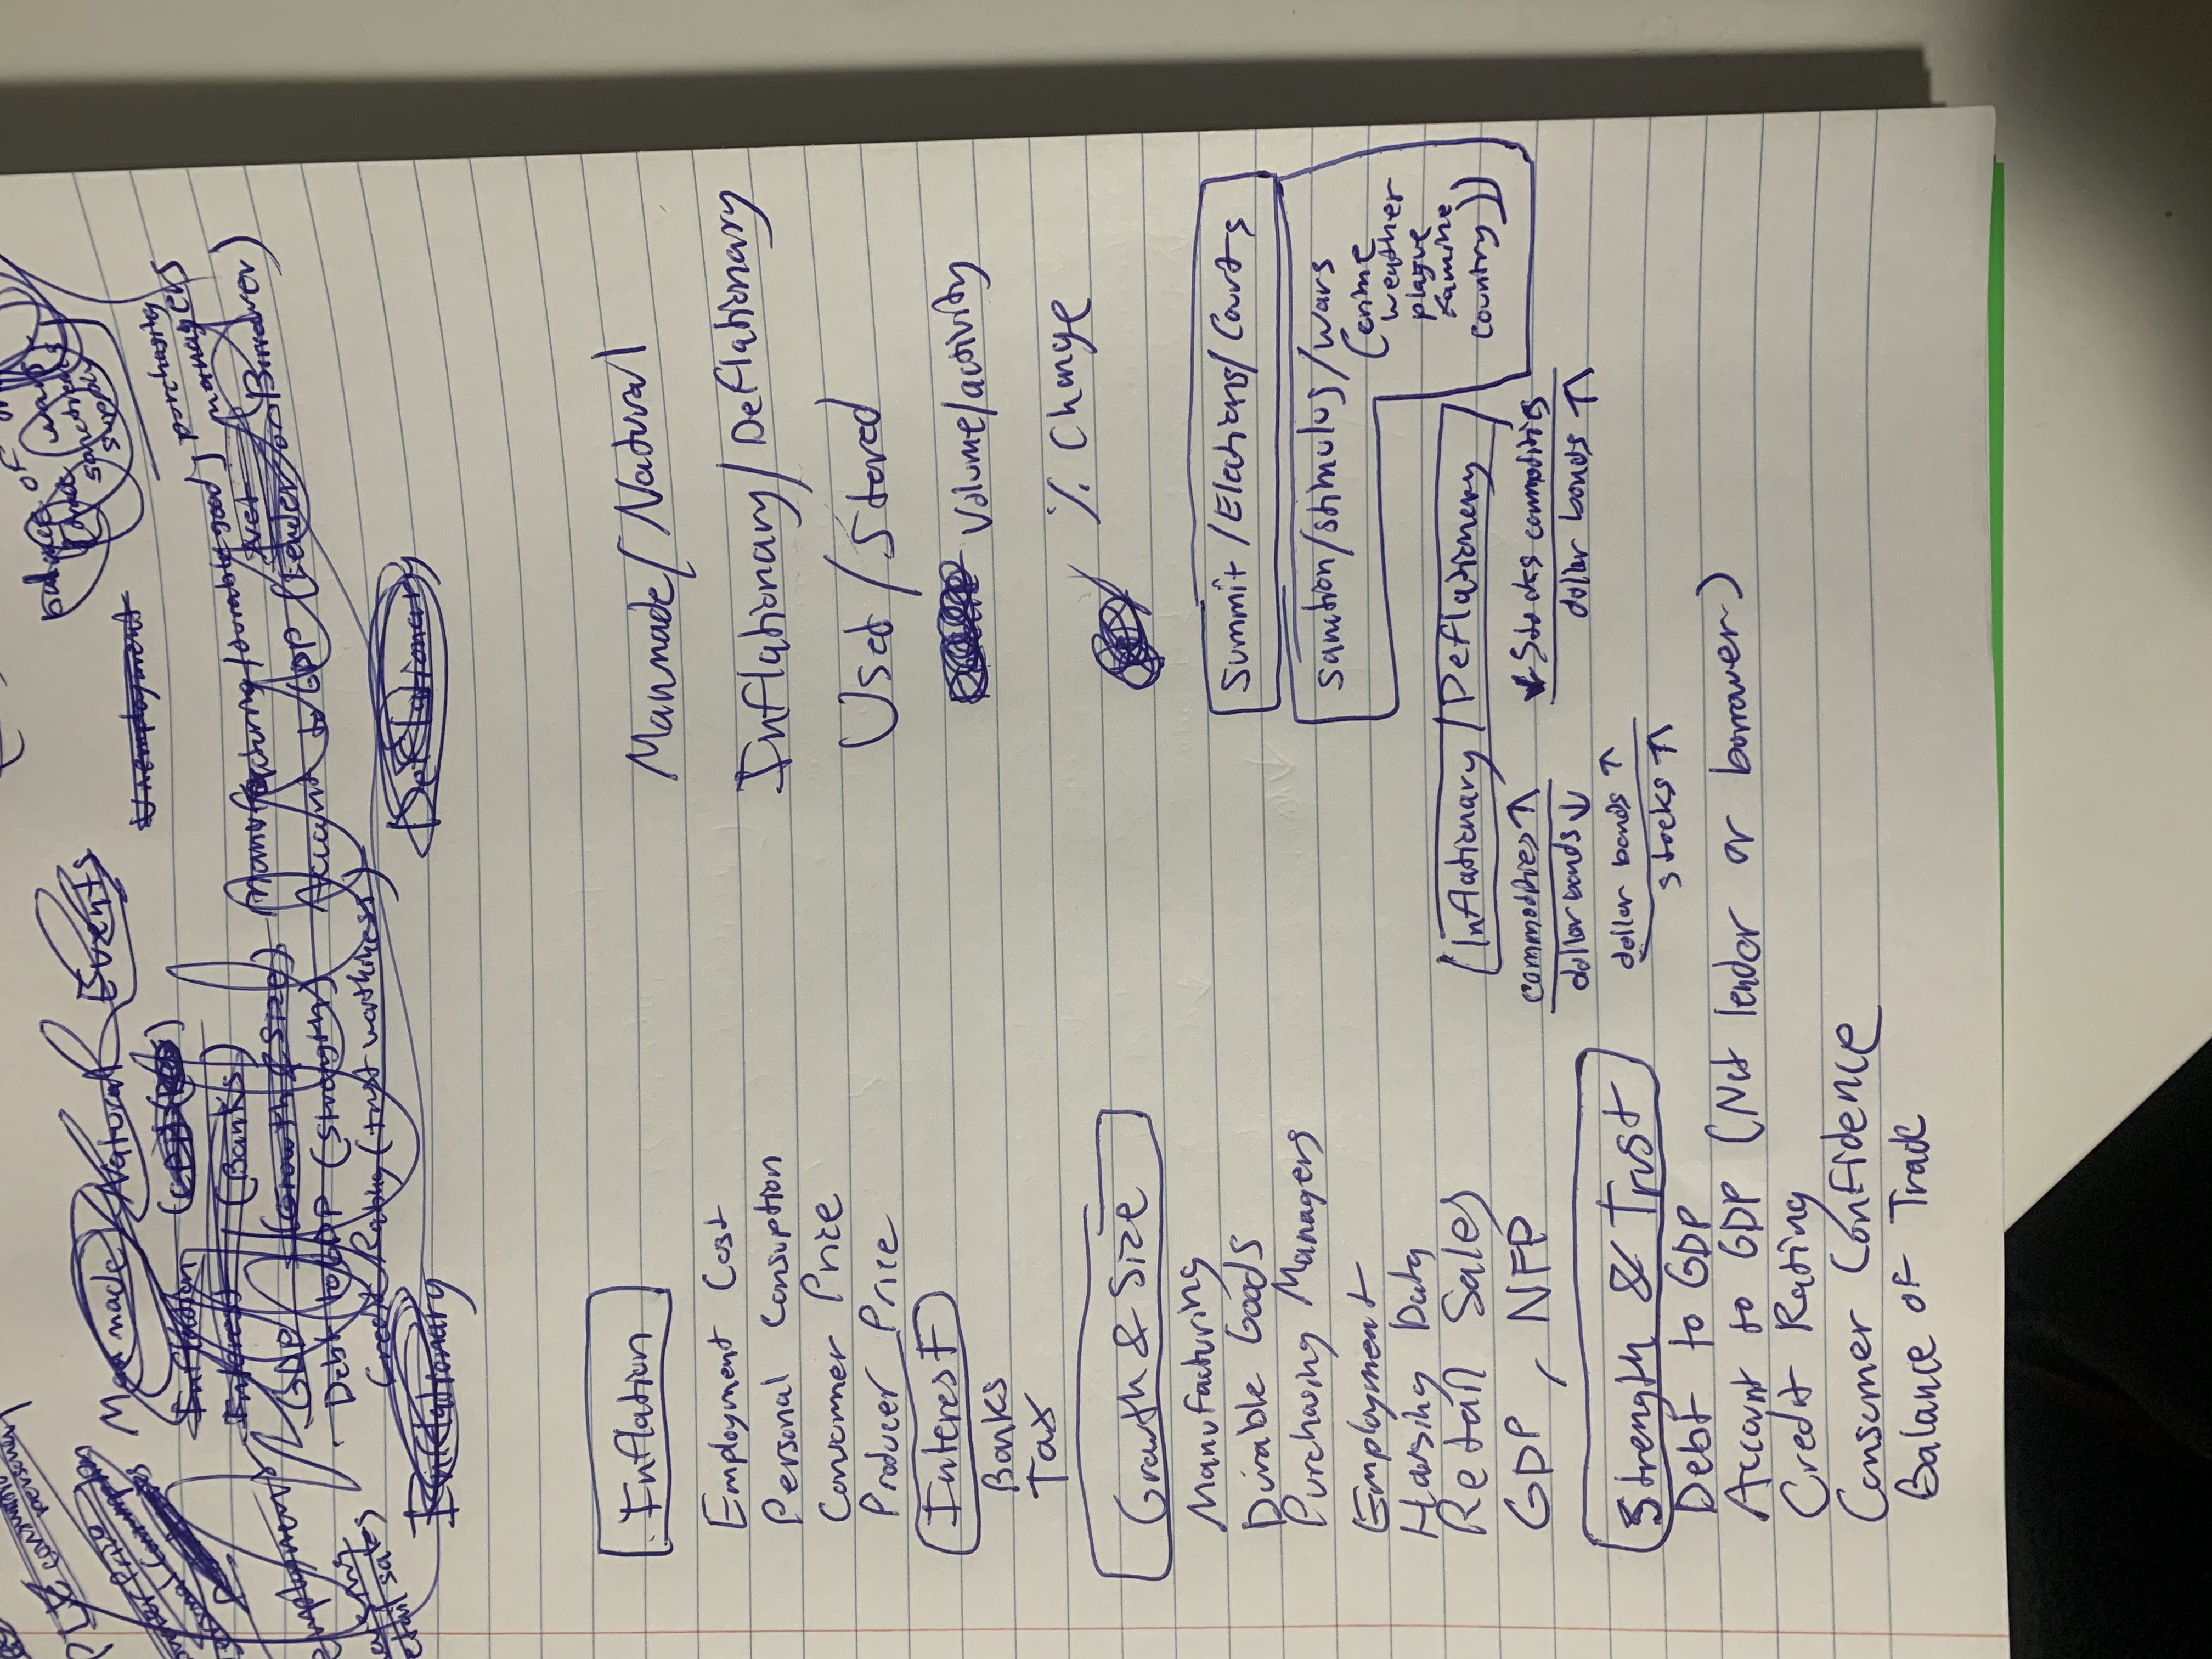 balance of
Man made / Natural Events
Inflation
Unemployment
purchasing
managers
Interest (Banks)
Manufacturing/durable goods
GDP (Growth & Size)
Net
Account to GDP (Lender or Borrower)
Debt to GDP (Strength)
Credit Rating (trust worthiness)
Inflationary
Deflationary
Inflation
Mannade / Natural
Employment Cost
Inflationary / Deflationary
Personal Consuption
Consumer Price
Used / Stored
Producer Price
Interest
Volume/activity
Banks
Tax
% Change
Growth & Size
Manufacturing
Summit / Elections / Courts
Durable Goods
Purchasing Managers
sanction/stimulus/wars
(crime
weather
plague
famine
country))
Employment
Housing Data
Retail Sales
Inflationary / Deflationary
GDP, NFP
commodities ↑
↓ Stocks commodities
dollar bonds ↓
dollar bonds ↑
dollar bonds ↑
stocks ↑
Strength & Trust
Debt to GDP
Account to GDP (Net lendor or borrower)
Credit Rating
Consumer Confidence
Balance of Trade